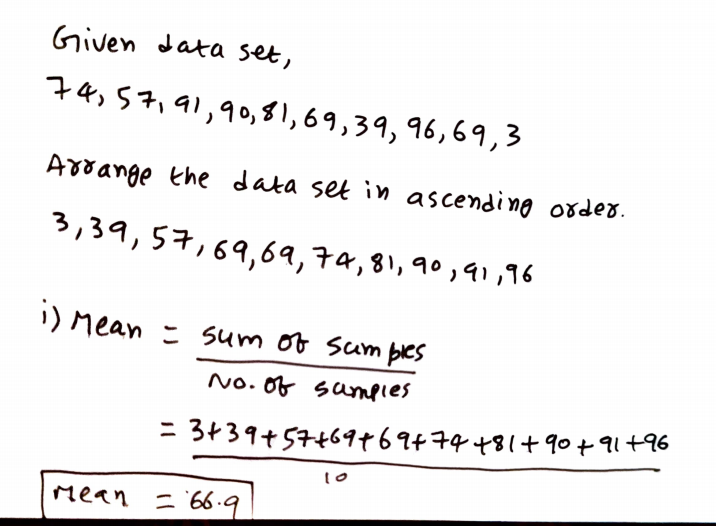 Given data set,
74, 57, 91, 90, 81, 69, 39, 96, 69, 3
Arrange the data set in ascending order.
3, 39, 57, 69, 69, 74, 81, 90, 91, 96
i) Mean = sum of samples
No. of samples
= 3+39+57+69+69+74+81+90+91+96
10
Mean = 66.9